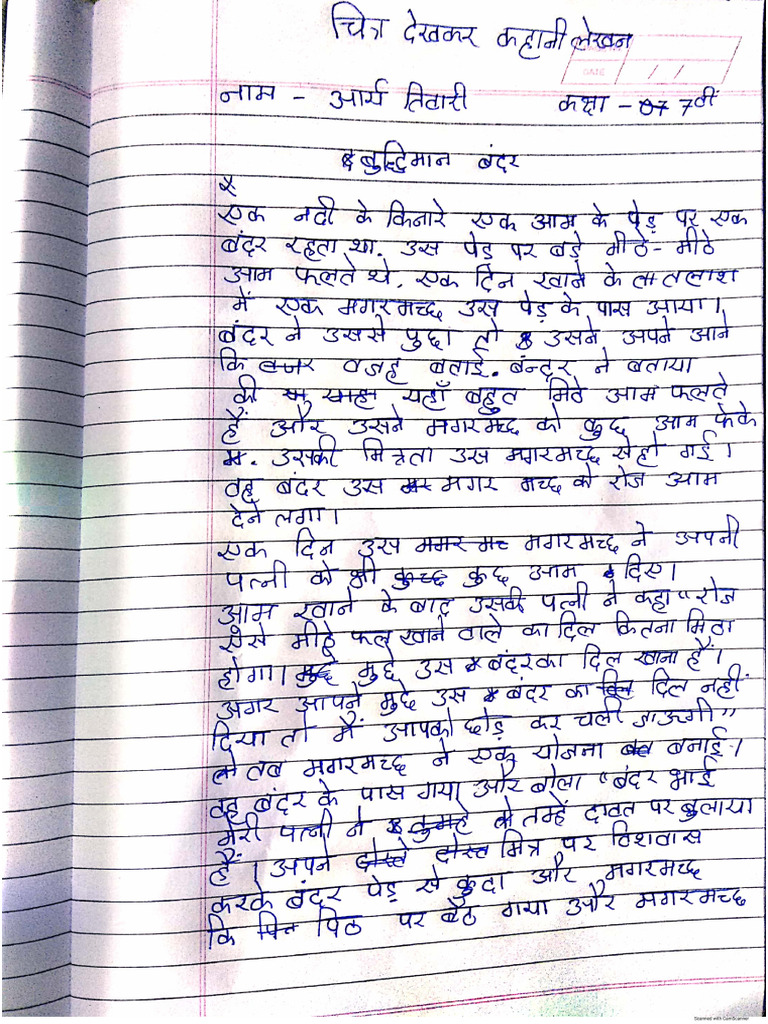 चित्र देखकर कहानी लेखन
DATE
नाम - आर्य तिवारी कक्षा - 7वीं
बुद्धिमान बंदर
एक नदी के किनारे एक आम के पेड़ पर एक
बंदर रहता था. उस पेड़ पर बड़े मीठे-मीठे
आम फलते थे. एक दिन खाने के तलाश
में एक मगरमच्छ उस पेड़ के पास आया।
बंदर ने उससे पुछा तो उसने अपने आने
कि वजह बताई. बंन्दर ने बताया
की यहाँ बहुत मिठे आम फलते
हैं और उसने मगरमच्छ को कुछ आम फेके
. उसकी मित्रता उस मगरमच्छ से हो गई।
वह बंदर उस मगर मच्छ को रोज आम
देने लगा।
एक दिन उस मगरमच्छ ने अपनी
पत्नी को भी कुछ आम दिए।
आम खाने के बाद उसकी पत्नी ने कहा "रोज
ऐसे मीठे फल खाने वाले का दिल कितना मिठा
होगा। मुझे उस बंदर का दिल खाना हैं।
अगर आपने मुझे उस बंदर का दिल नहीं
दिया तो मैं आपको छोड़ कर चली जाऊगी"
तब मगरमच्छ ने एक योजना बनाई।
वह बंदर के पास गया और बोला "बंदर भाई
मेरी पत्नी ने तुम्हें दावत पर बुलाया
हैं। अपने मित्र पर विशवास
करके बंदर पेड़ से कुदा और मगरमच्छ
कि पिठ पर बैठ गया और मगरमच्छ
Scanned with CamScanner